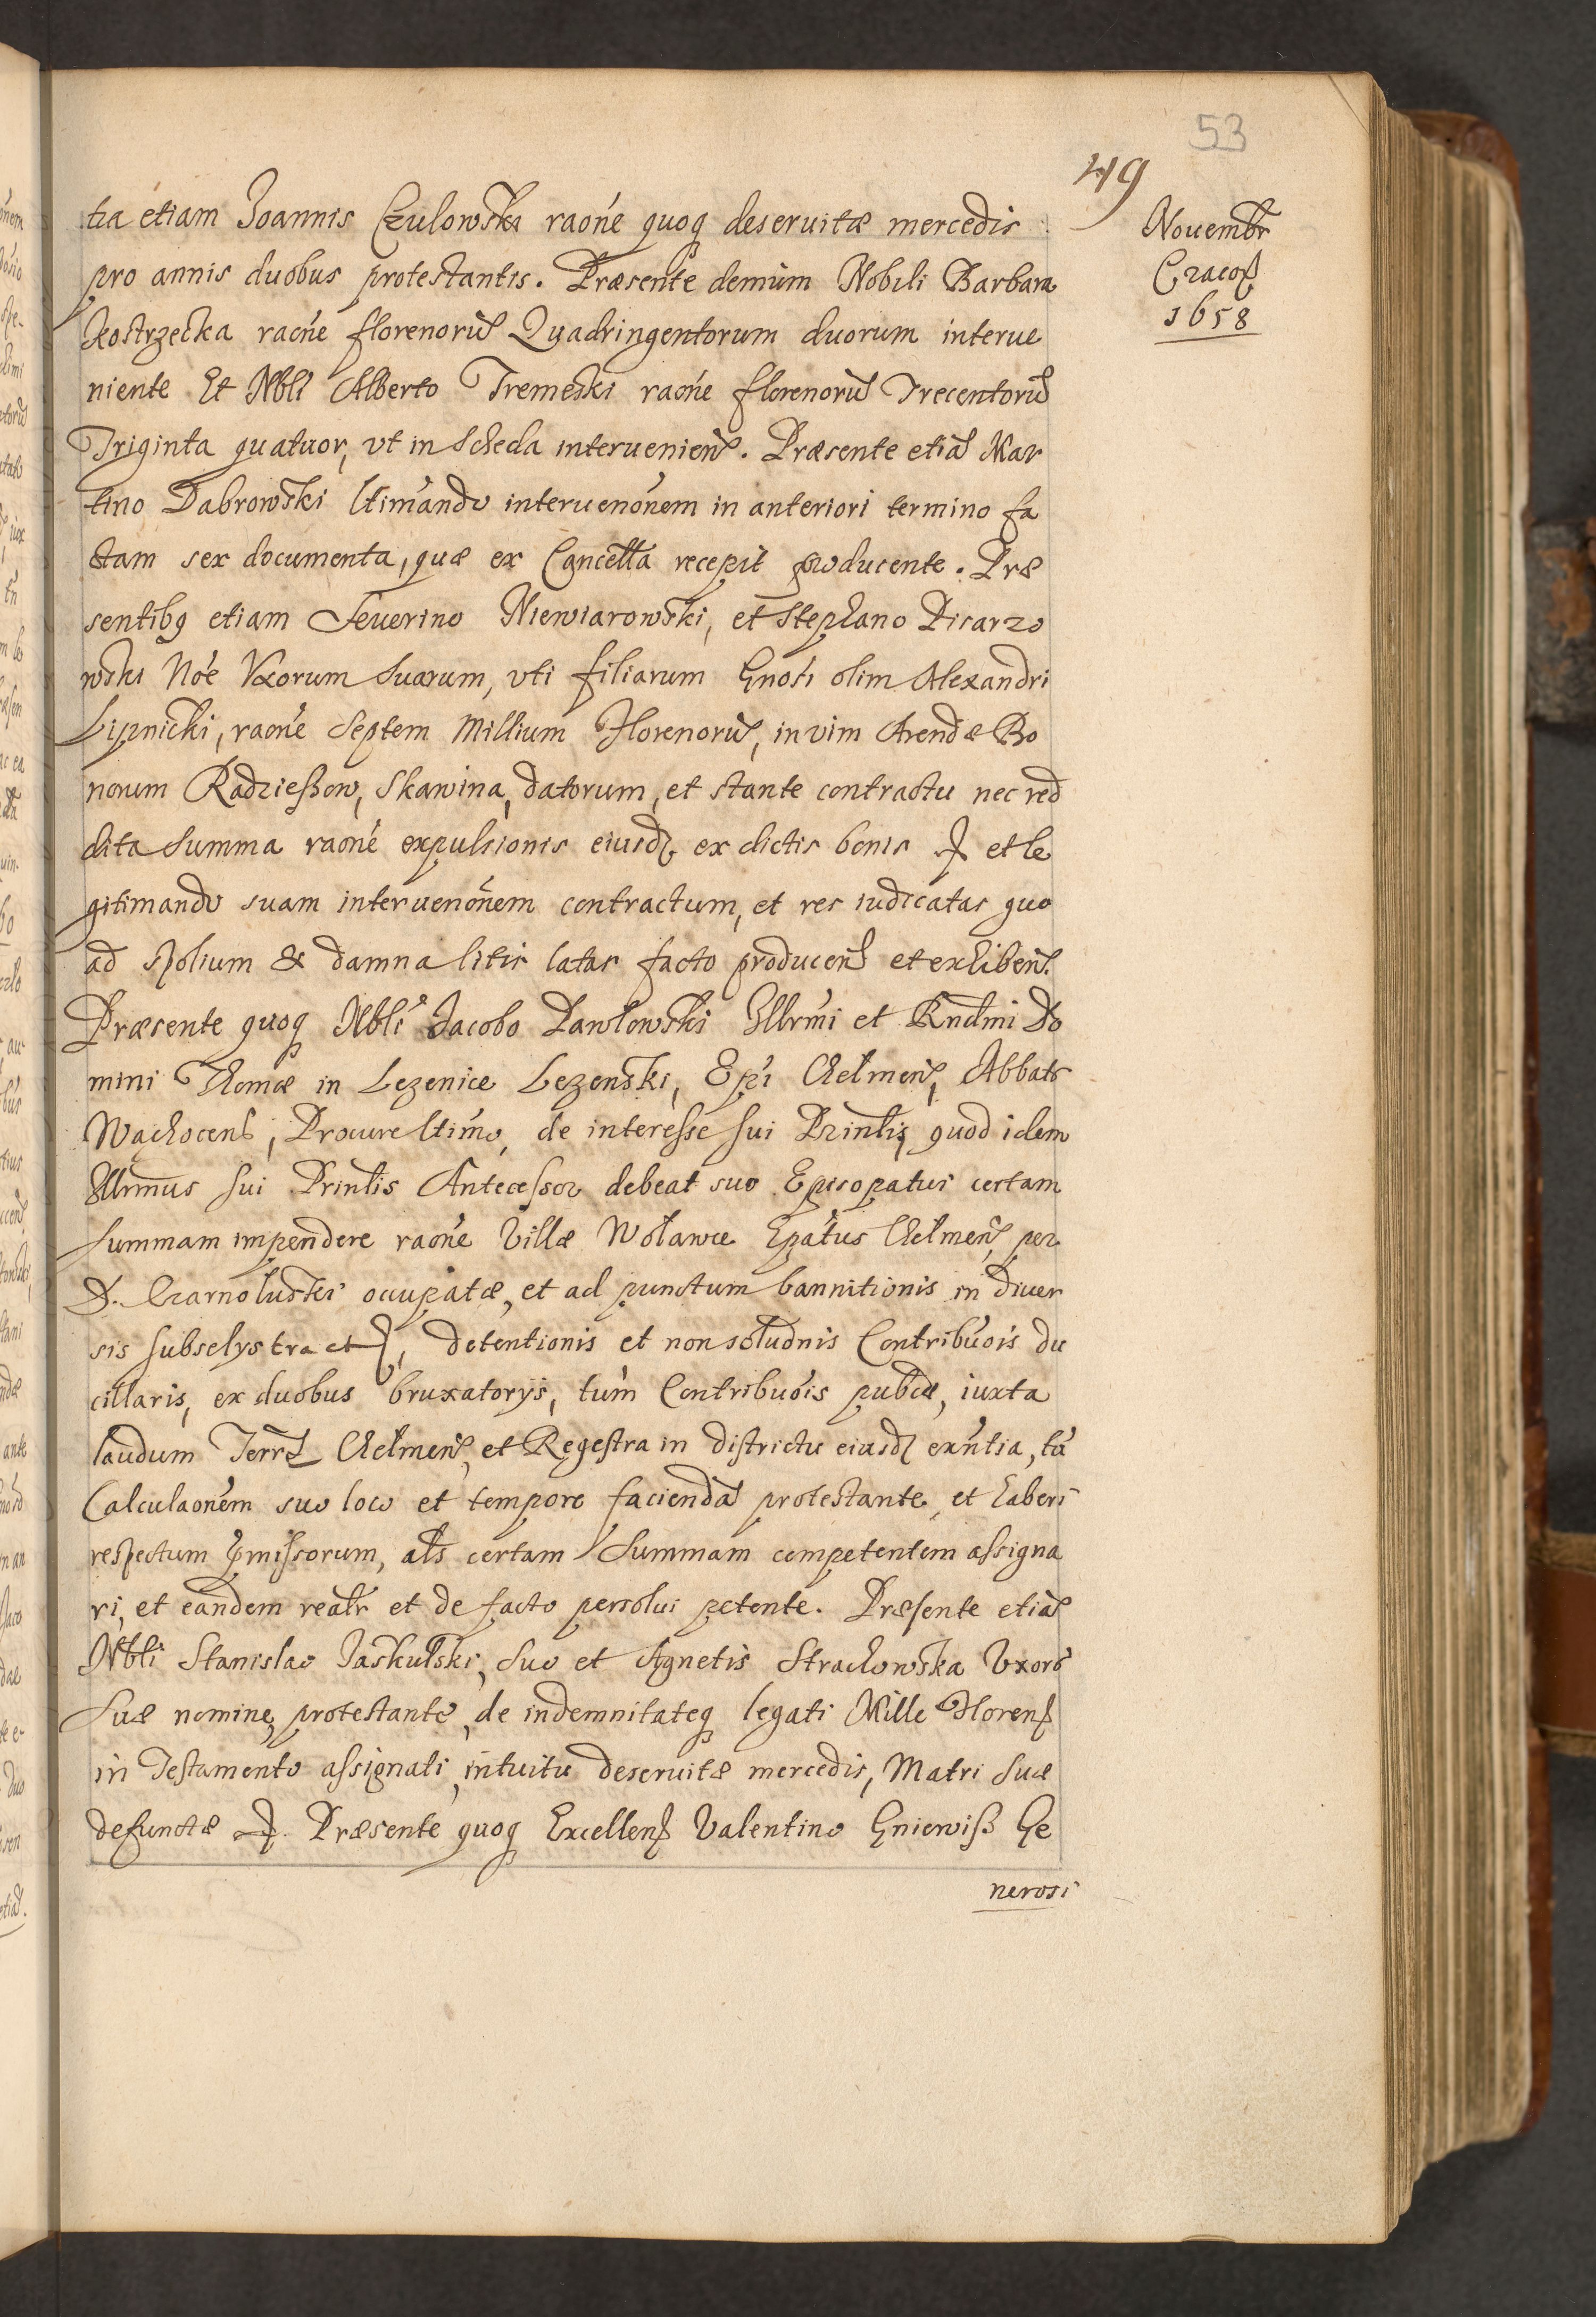 53
49
Nouembr
Cracoß
1658
tia etiam Joannis Czulowski raõne quoq deseruitæ mercedis
pro annis duobus protestantis. Præsente demùm Nobili Barbara
Kostrzecka raõne florenorũ Quadringentorum duorum interue
niente Et Nbli Alberto Tremeski raõne florenorũ Trecentorũ
Triginta quatuor, vt in Scheda interuenieñ. Præsente etiã Mar
tino Dabrowski ltimãndo interuenõnem in anteriori termino fa
ctam sex documenta, quæ ex Cancellã recepit producente. Præ
sentibq etiam Seuerino Niewiarowski, et Stephano Pisarzo
wski Nõe Vxorum Suarum, vti filiarum Gnosi olim Alexandri
Lipnicki, raõne Septem Millium Florenorũ, in vim Arendæ Bo
norum Radzießow, Skawina, datorum, et stante contractu nec red
dita Summa raõne expulsionis eiusdẽ ex dictis bonis et le
gitimando suam interuenõnem contractum, et res iudicatas quo
ad spolium & damna litis latas facto produceñ et exhibeñ.
Præsente quoq Nbli Jacobo Pawlowski Illrmi et Rndmi Do
mini Thomæ in Lezenice Lezenski, Epi Chelmeñ, Abbatr
Wachocenß, Procure ltimo, de interesse sui Prinlis, quod idem
Illrmus sui Prinlis Antecessor debeat suo Episopatui certam
Summam impendere raõne Villæ Wolawce Epãtus Chelmeñ per
D. Czarnoluski occupatæ, et ad punctum bannitionis in diuer
sis subselys tractẽ, detentionis et non soludnis Contribuõis du
cillaris, ex duobus bruxatorys, tum Contribuõis pubcæ, iuxta
laudum Terrẽ Chelmeñ, et Regestra in districtu eiusdẽ exñtia, tũ
Calculaõnem suo loco et tempore faciendã protestante, et haberi
respectum pmissorum, als certam Summam competentem assigna
ri, et eandem realr et de facto persolui petente. Præsente etiã
Nbli Stanislao Jaskulski, Suo et Agnetis Strachowska Vxors
Suæ nomine, protestante, de indemnitateq legati Mille Florenß
in Testamento assignati, intuitu deseruitæ mercedis, Matri Suæ
defunctæ Præsente quoq Excellenß Valentino Gniewiß Ge
nerosi